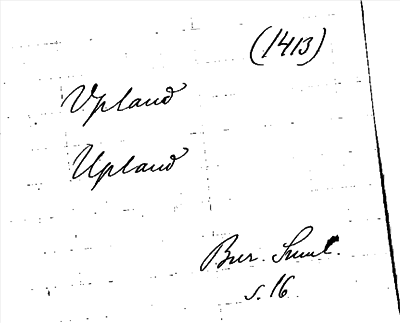 (1413)
Vpland
Upland
Bur. Suml.
s. 16